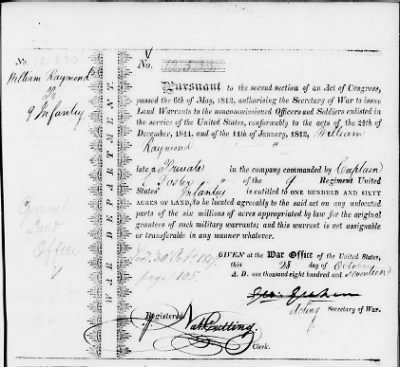 No.
William Raymond
9 Infantry
WAR DEPARTMENT
No.
Pursuant to the second section of an Act of Congress,
passed the 6th of May, 1812, authorising the Secretary of War to issue
Land Warrants to the noncommissioned Officers and Soldiers enlisted in
the service of the United States, conformably to the acts of the 24th of
December, 1811, and of the 11th of January, 1812, William
Raymond
late a Private in the company commanded by Captain
Foster of the 9 Regiment United
States' Infantry is entitled to ONE HUNDRED AND SIXTY
ACRES OF LAND, to be located agreeably to the said act on any unlocated
parts of the six millions of acres appropriated by law for the original
grantees of such military warrants; and this warrant is not assignable
or transferable in any manner whatever.
General
Land
Office
page 105
GIVEN at the War Office of the United States,
this 28 day of October
A. D. one thousand eight hundred and
Geo: Graham
Acting Secretary of War.
Registered
Nat Cutting.
Clerk.